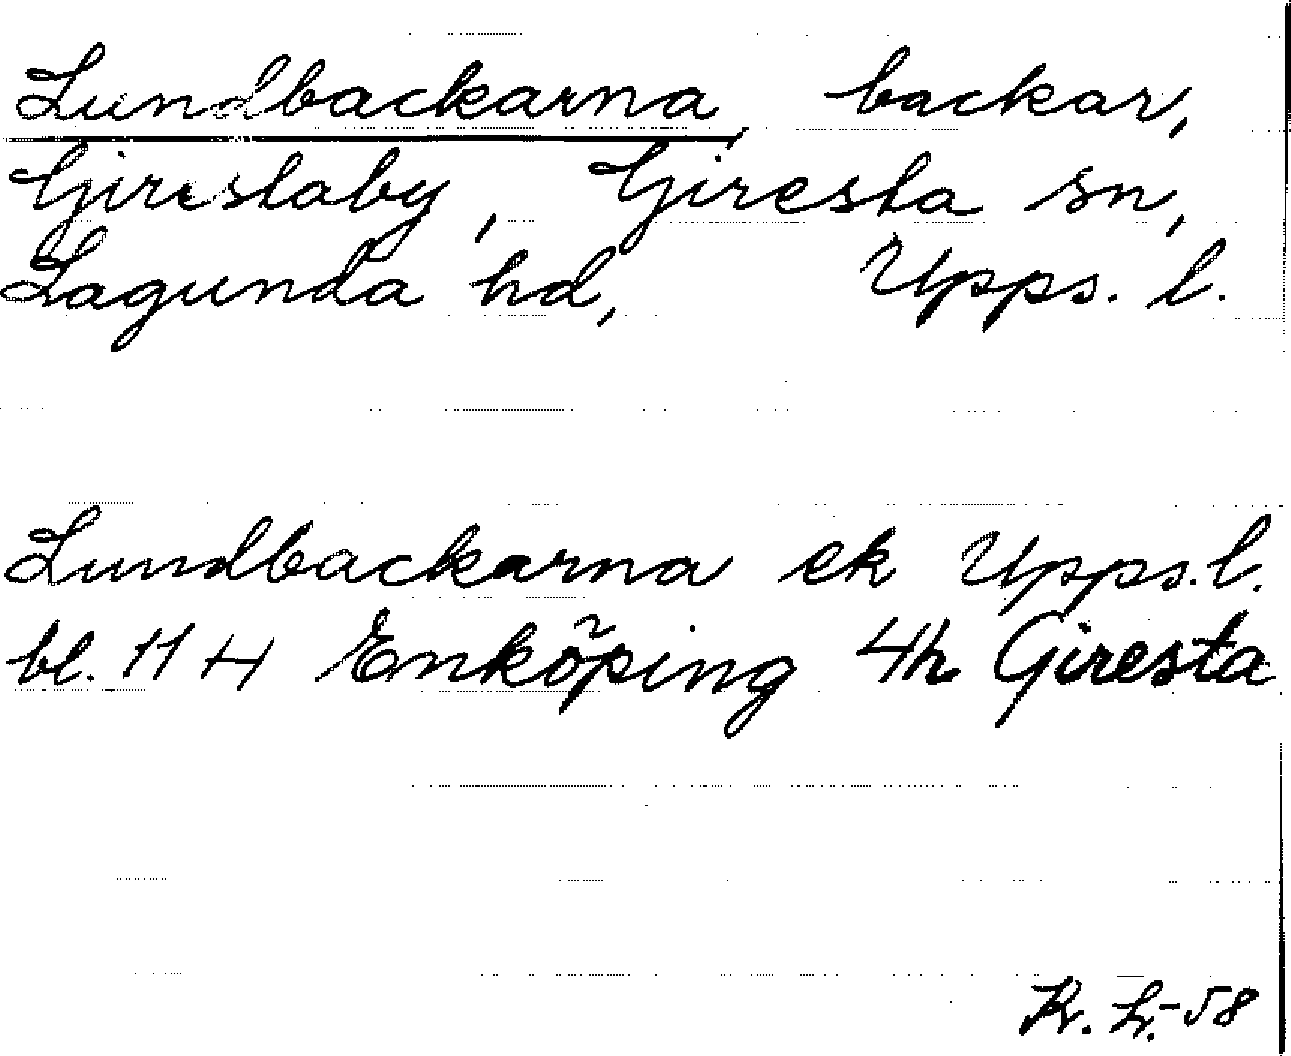 Lundbackarna, backar,
Girestaby, Giresta sn,
Lagunda hd, Upps. l.
Lundbackarna ek Upps. l.
bl. 11 H Enköping 4h Giresta
K. L.-58